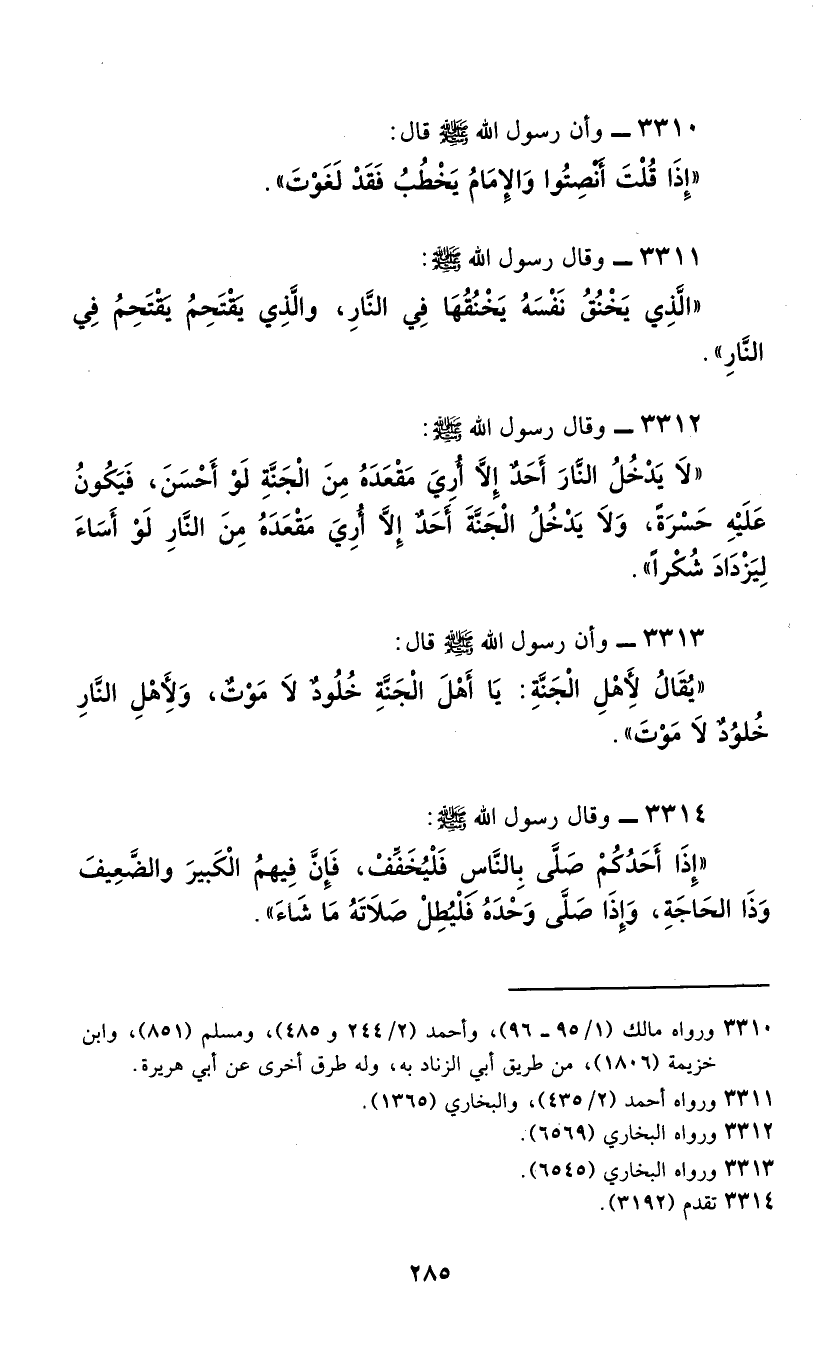 ٣٣١٠ ــ وأن رسول الله ﷺ قال:
«إِذَا قُلْتَ أَنْصِتُوا وَالإِمَامُ يَخْطُبُ فَقَدْ لَغَوْتَ».
٣٣١١ ــ وقال رسول الله ﷺ:
«الَّذِي يَخْنُقُ نَفْسَهُ يَخْنُقُهَا فِي النَّارِ، والَّذِي يَقْتَحِمُ يَقْتَحِمُ فِي
النَّارِ».
٣٣١٢ ــ وقال رسول الله ﷺ:
«لَا يَدْخُلُ النَّارَ أَحَدٌ إِلاَّ أُرِيَ مَقْعَدَهُ مِنَ الْجَنَّةِ لَوْ أَحْسَنَ، فَيَكُونُ
عَلَيْهِ حَسْرَةً، وَلَا يَدْخُلُ الْجَنَّةَ أَحَدٌ إِلاَّ أُرِيَ مَقْعَدَهُ مِنَ النَّارِ لَوْ أَسَاءَ
لِيَزْدَادَ شُكْراً».
٣٣١٣ ــ وأن رسول الله ﷺ قال:
«يُقَالُ لأَهْلِ الْجَنَّةِ: يَا أَهْلَ الْجَنَّةِ خُلُودٌ لَا مَوْتٌ، وَلأَهْلِ النَّارِ
خُلوُدٌ لَا مَوْتَ».
٣٣١٤ ــ وقال رسول الله ﷺ:
«إِذَا أَحَدُكُمْ صَلَّى بِالنَّاسِ فَلْيُخَفِّفْ، فَإِنَّ فِيهمُ الْكَبيرَ والضَّعِيفَ
وَذَا الحَاجَةِ، وَإِذَا صَلَّى وَحْدَهُ فَلْيُطِلْ صَلَاتَهُ مَا شَاءَ».
٣٣١٠ ورواه مالك (١/ ٩٥ ـ ٩٦)، وأحمد (٢/ ٢٤٤ و ٤٨٥)، ومسلم (٨٥١)، وابن
خزيمة (١٨٠٦)، من طريق أبي الزناد به، وله طرق أخرى عن أبي هريرة.
٣٣١١ ورواه أحمد (٢/ ٤٣٥)، والبخاري (١٣٦٥).
٣٣١٢ ورواه البخاري (٦٥٦٩).
٣٣١٣ ورواه البخاري (٦٥٤٥).
٣٣١٤ تقدم (٣١٩٢).
٢٨٥